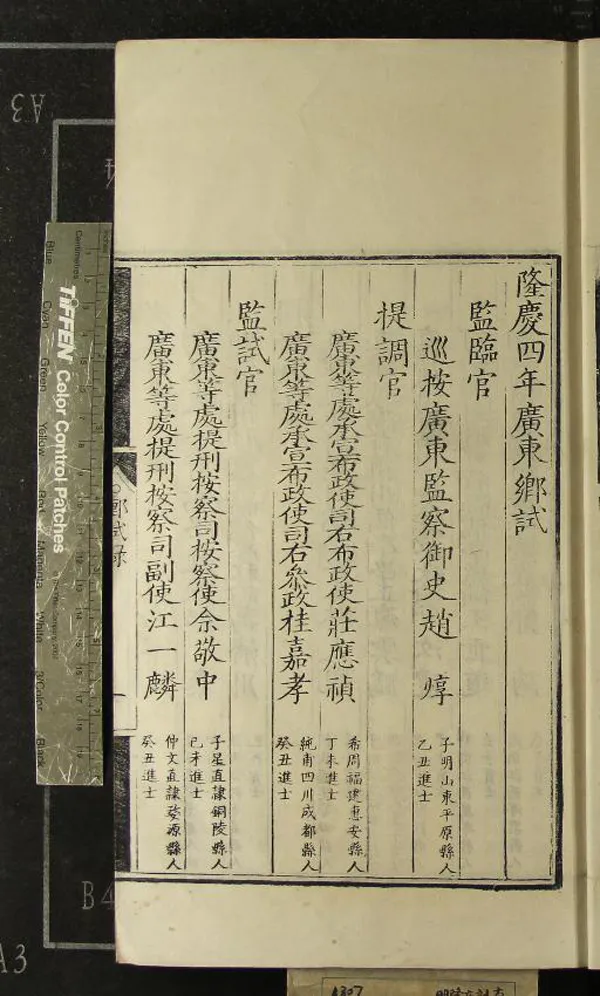 隆慶四年廣東鄉試
監臨官
巡按廣東監察御史趙焞 子明山東平原縣人 乙丑進士
提調官
廣東等處承宣布政使司右布政使莊應禎 希周福建惠安縣人 丁未進士
廣東等處承宣布政使司右叅政桂嘉孝 純甫四川成都縣人 癸丑進士
監試官
廣東等處提刑按察司按察使佘敬中 子星直隸銅陵縣人 己未進士
廣東等處提刑按察司副使江一麟 仲文直隸婺源縣人 癸丑進士
鄉試录
一
TIFFEN Color Control Patches
Centimetres
Blue
Cyan
Green
Yellow
Red
Magenta
White
3/Color
Black
A3
B4
A3
A307